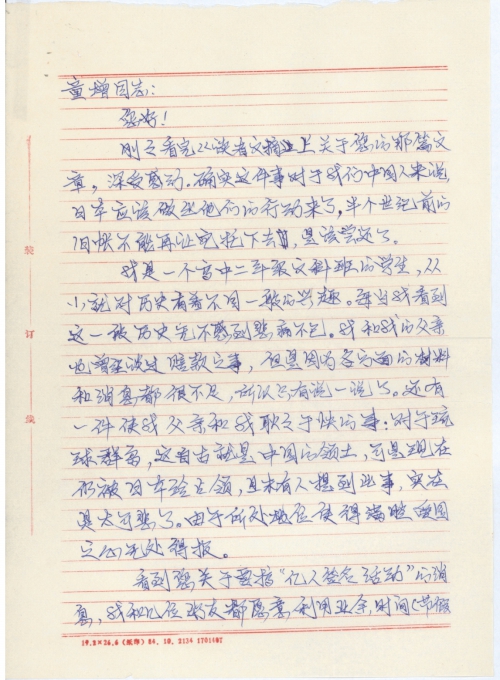 童增同志:
您好!
刚才看完《读者文摘》上关于您的那篇文
章,深受感动。确实这件事对于我们中国人来说
日本应该做出他们的行动来了,半个世纪前的
旧帐不能再让它托下去,是该尝还了。
我是一个高中二年级文科班的学生,从
小就对历史有着不同一般的兴趣。每当我看到
这一段历史无不感到悲愤不已。我和我的父亲
也曾经谈过赔款之事,但是因为各方面的材料
和消息都很不足,所以只有说一说了。还有
一件使我父亲和我耿耿于怀的事:对于琉
球群岛,这自古就是中国的领土,可是现在
仍被日本给占领,且未有人提到此事,实在
是太可悲了。由于所处地位使得满腔爱国
之心无处得报。
看到您关于要搞“亿人签名活动”的消
息,我和几位好友都愿意利用业余时间(节假
装
订
线
19.2×26.6 (纸印) 84. 10. 2134 1701497